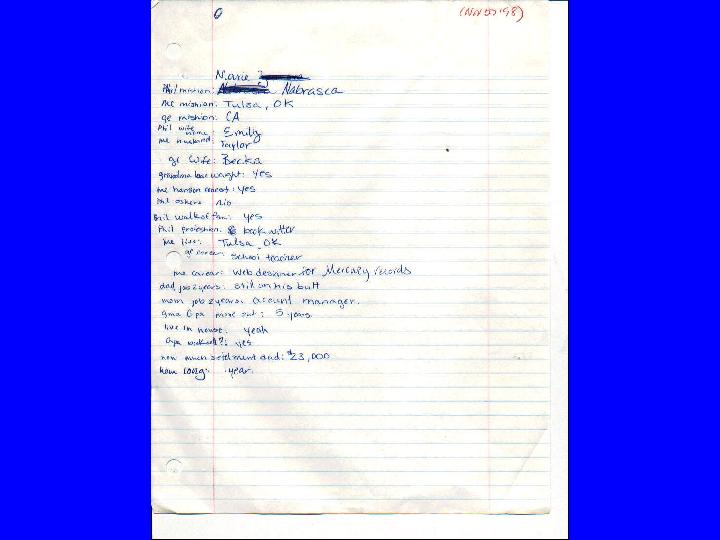 (Nov 5 '98)
Marie
Phil mishion: Nabrasca
me mishion: Tulsa, OK
ge mishion: CA
Phil wife name: Emily
me husband: Taylor
ge Wife: Becka
grandma lose waight: yes
me hanson concert: yes
Phil
walk of fam: yes
Phil profeshion: book writter
me live: Tulsa, OK
ge career: School teacher
me career: Web designer for Mercury records
dad job 2 years: still on his butt
mom job 2 years: acount manager.
Gma Gpa move out: 5 years
live in house: yeah
Gpa: yes
how much setelment and: $23,000
how long: year.